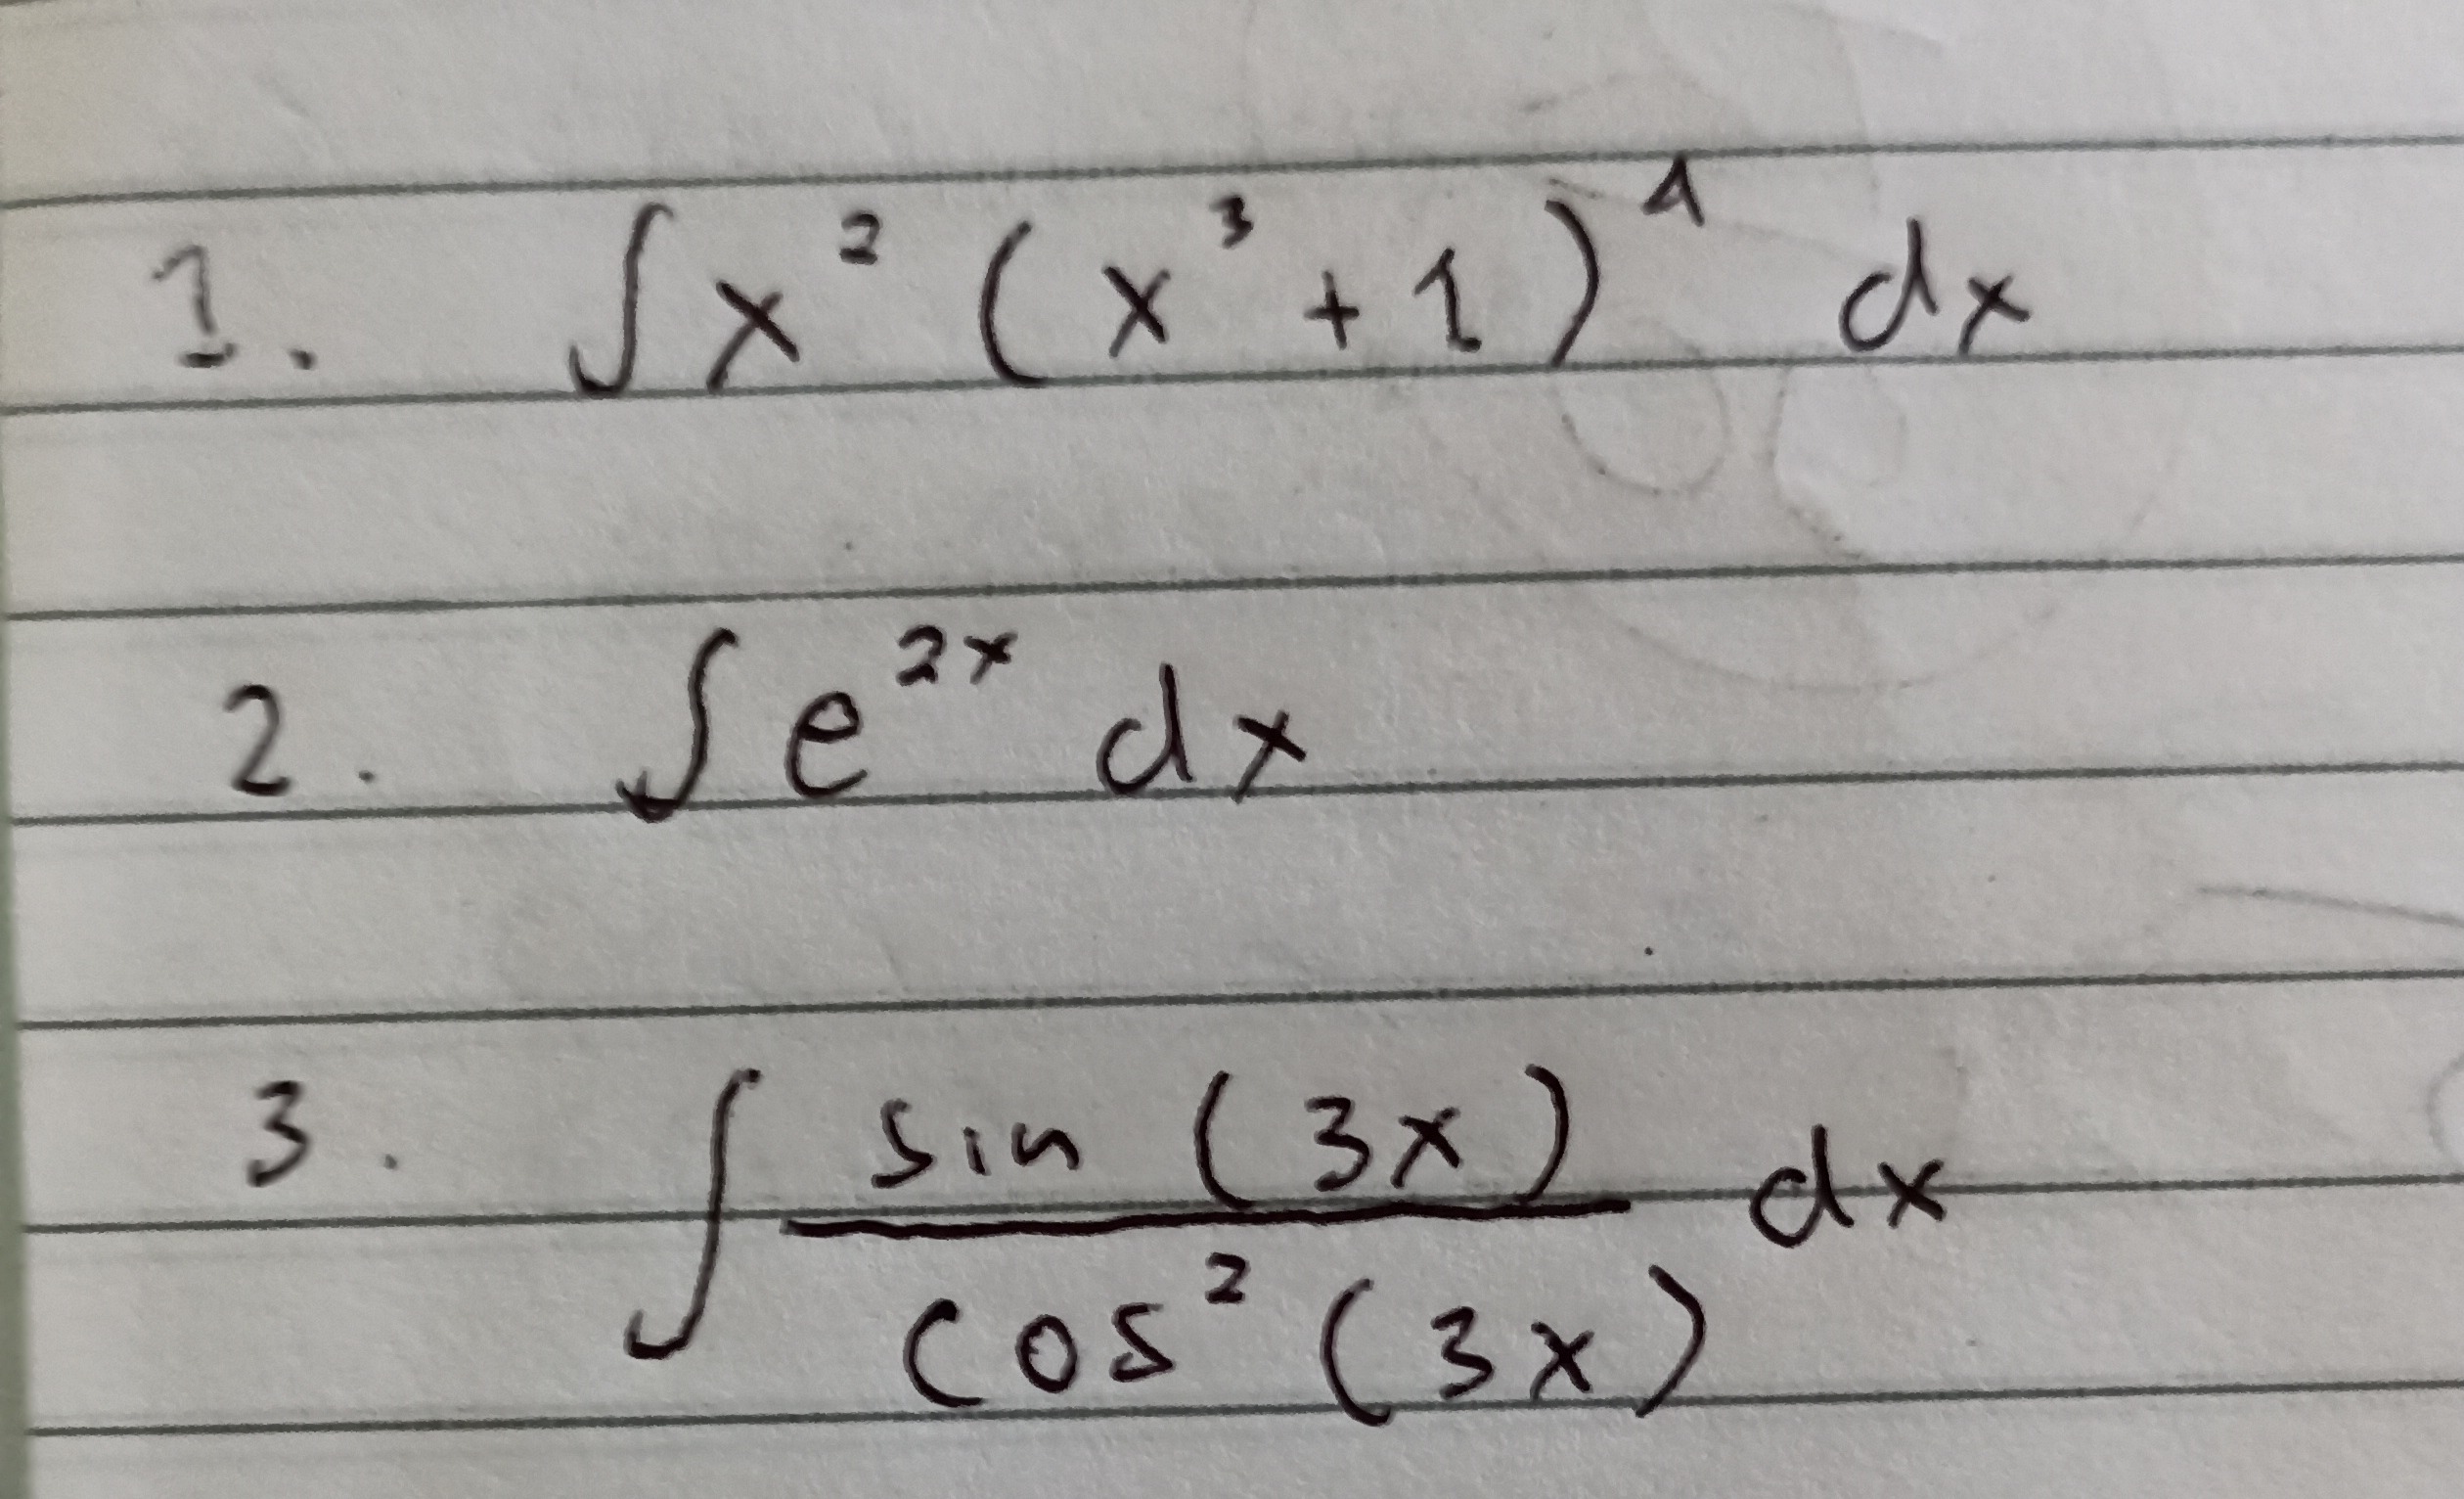 1. ∫ x² (x³ + 1)⁴ dx
2. ∫ e²ˣ dx
3. ∫ sin (3x) / cos² (3x) dx